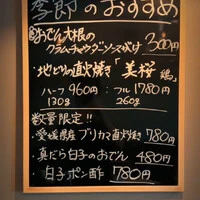 季節のおすすめ
おでん大根の
クラムチャウダーソースがけ 300円
・地どりの直火焼き「美桜鶏」
ハーフ 960円 : フル 1780円
130g 260g
数量限定!!
・愛媛県産ブリカマ直火焼き 780円
・真だら白子のおでん 480円
・白子ポン酢 780円